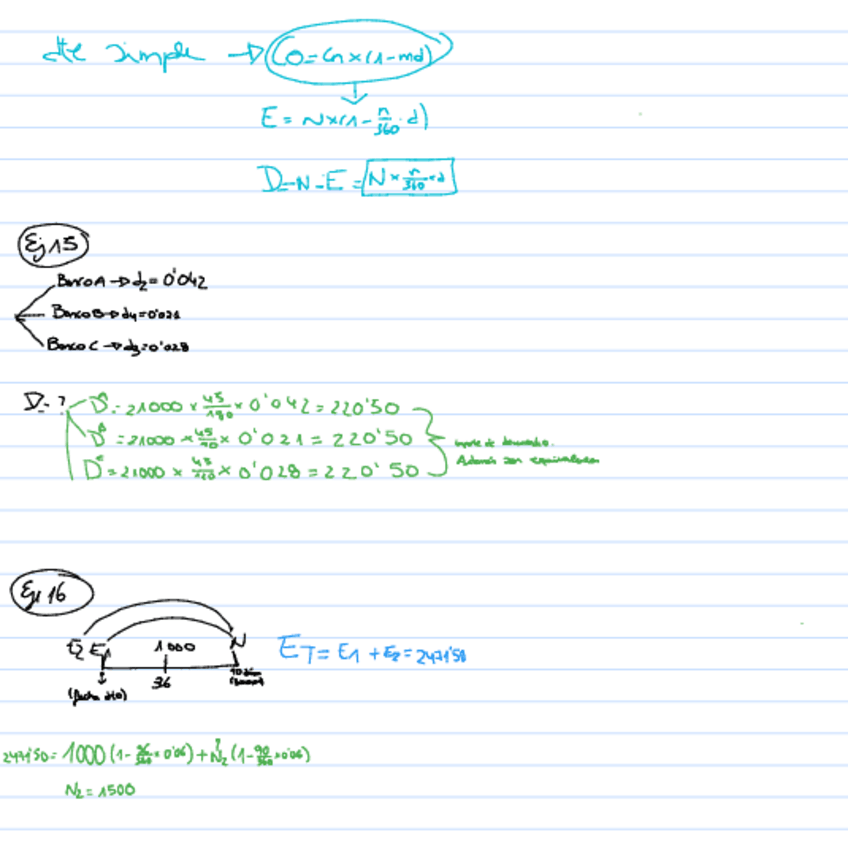 dte simple → C0 = Cn x (1 - md)
E = N x (1 - n/360 · d)
D = N - E = N x n/360 x d
Ej 15
Banco A → d2 = 0'042
Banco B → d4 = 0'021
Banco C → d3 = 0'028
D = ?
D^A = 21000 x 45/180 x 0'042 = 220'50
D^B = 21000 x 45/90 x 0'021 = 220'50
D^C = 21000 x 45/120 x 0'028 = 220'50
Además son equivalentes
Ej 16
E2 E1 1000 N
36
(fecha dto)
ET = E1 + E2 = 2471'50
2471'50 = 1000 (1 - 36/360 x 0'06) + N2 (1 - 90/360 x 0'06)
?
N2 = 1500